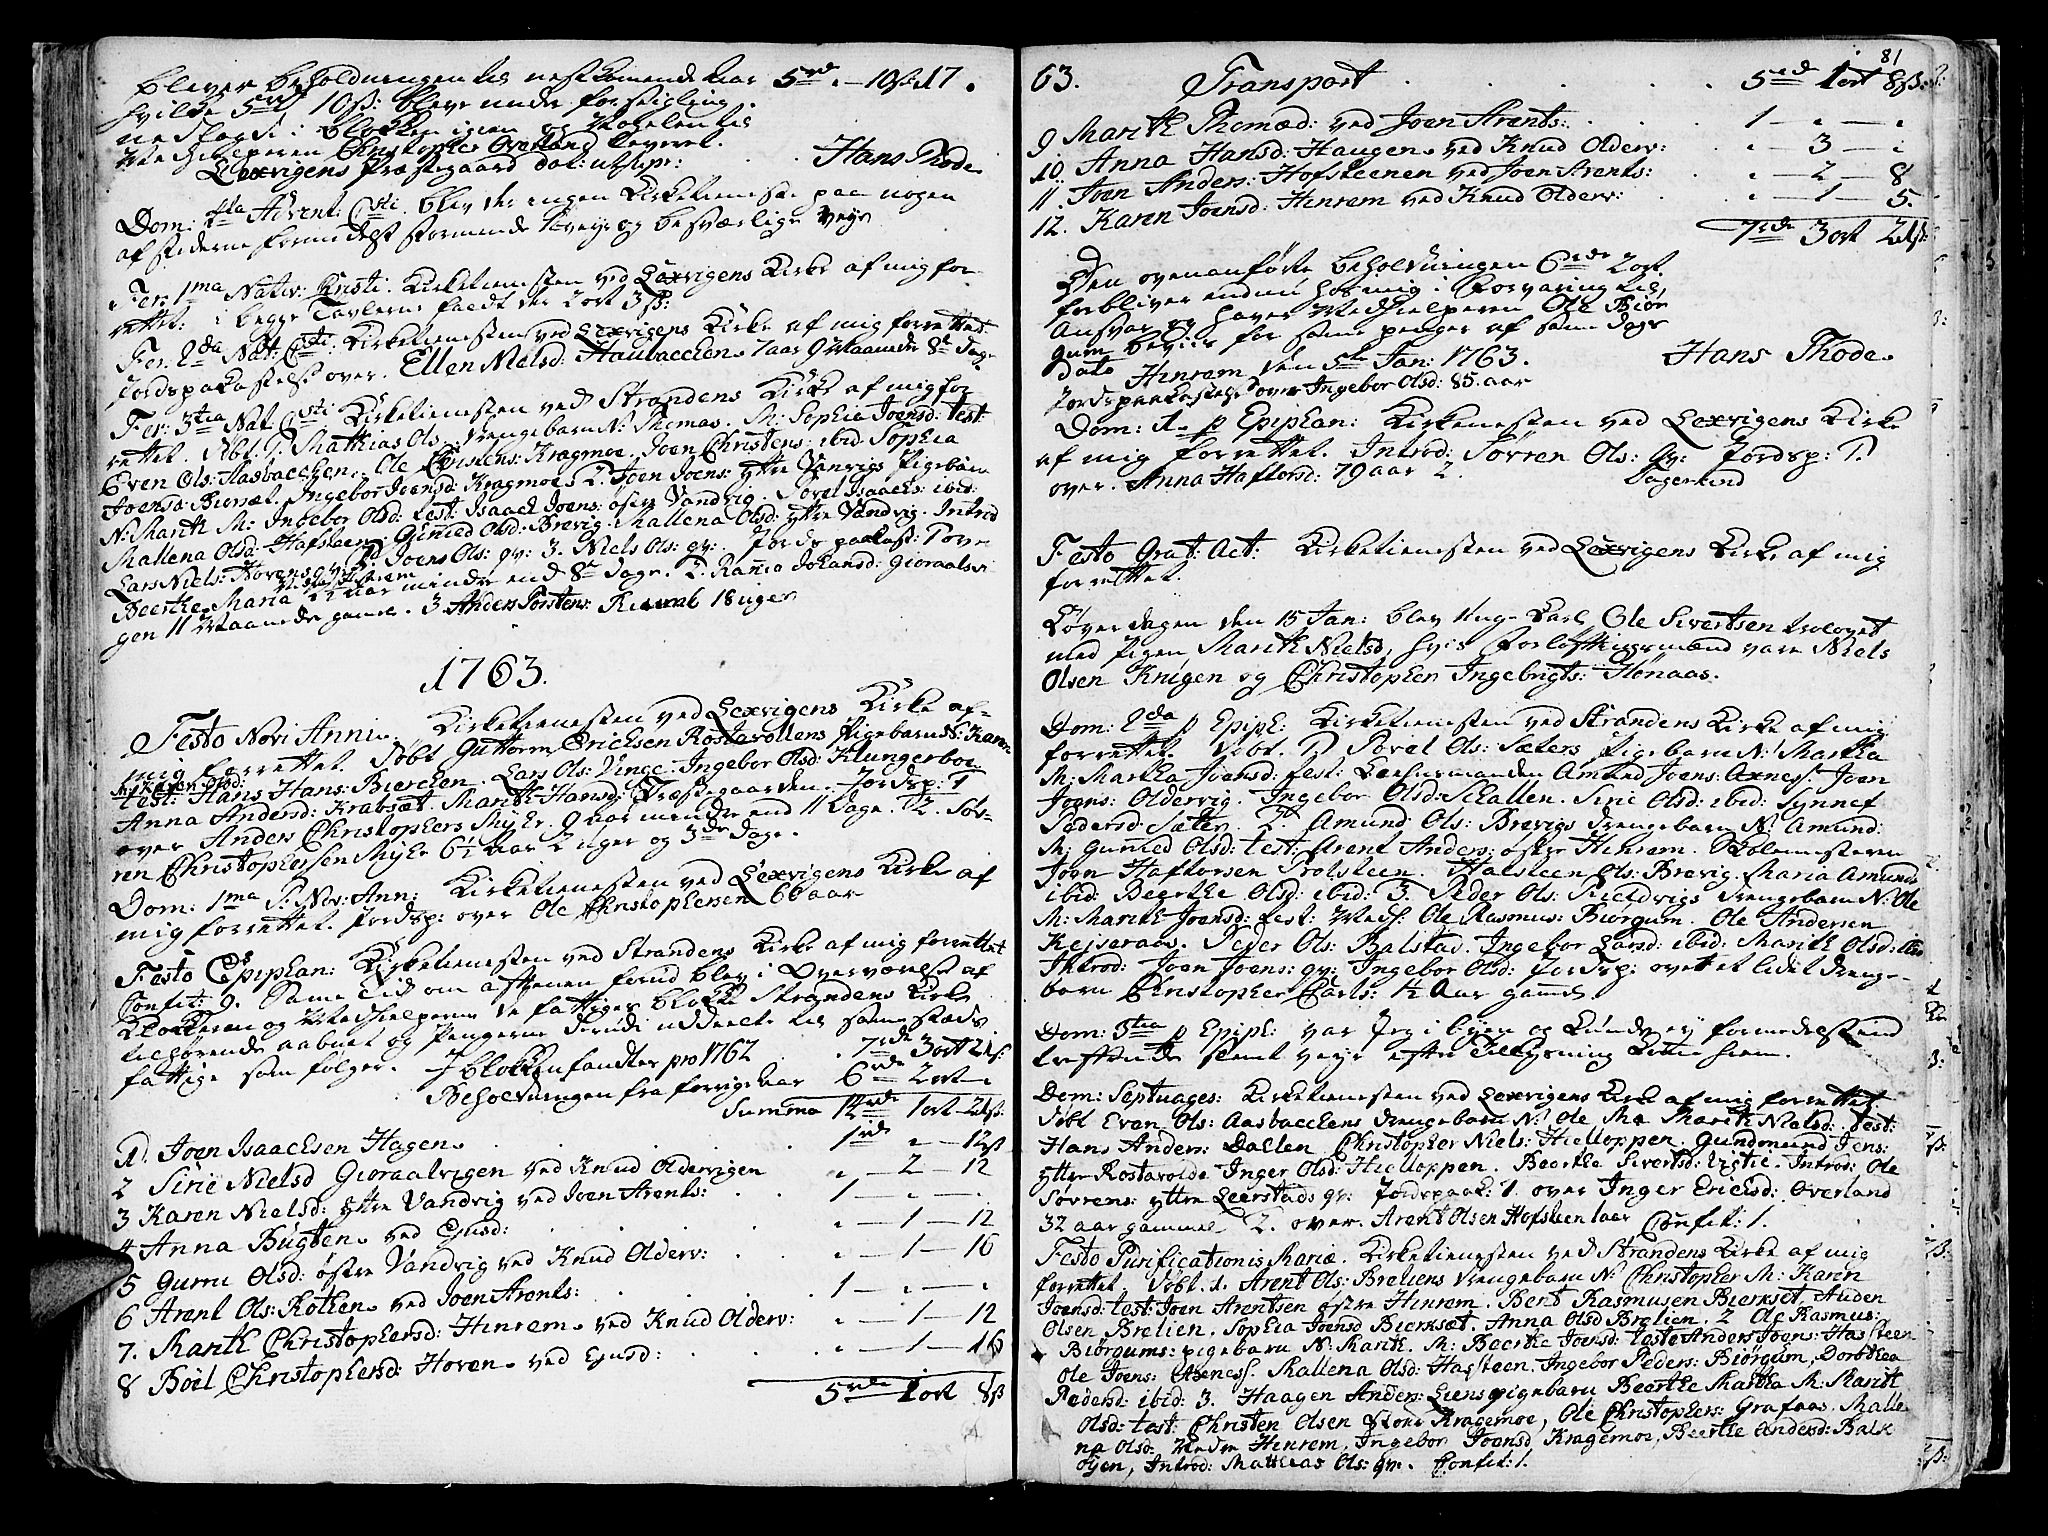 bliver beholdningen til nestkomende Aar 5rd. — 10ß: 17.
hvilke 5rd 10ß: bleve under forseigling
nedlagt i blokken igien og Nøgelen til
Medhielperen Christopher Overland leveret.
Lexvigens Præstegaard dat: ut supr: Hans Thode
Dom: 4ta Advent: Csti. blev der ingen Kirketieneste paa nogen
af stederne formedelst stormende Veyr og besværlige Veye
Fer: 1ma Nativ: Christi. Kirketienesten ved Lexvigens Kirke af mig for-
rettet: i begge Tavlerne faldt der 2 ort 3ß:
Fer: 2da Nat: Csti. Kirketienesten ved Lexvigens Kirke af mig forrettet
Jordspaakastelse over. Ellen Nielsd: Haubacchen 7 aar 9 Maaneder 8t dage
Fer: 3tia Nat Csti Kirketienesten ved Strandens Kirke af mig for
rettet. Døbt. 1. Mathias Ols: Drengebarn N: Thomas. M: Sophia Joensd: Test:
Even Ols: Aasbacchen. Ole Christens: Kragmoe. Joen Christens: ibid: Sophia
Joensd: Bierset. Ingebor Joensd: Kragmoe. 2. Joen Joens: yttre Vanvigs Pigebarn
N: Marith M: Ingebor Olsd: Test: Isaack Joens: østre Vandvig. Sovel Isaacks: ibid:
Mallena Olsd: Hafsteen. Gunild Olsd: Brevig. Mallena Olsd: yttre Vandvig. Introd
Joens Ols: qv: 3. Niels Ols: qv: Jordspaakast: 1 over
Lars Niels: Hovens
Beerthe Maria 11 aar mindre end 8t dage. 2. Rania Johansd: Gioraalvi
gen 11 Maaneder gamel. 3 Anders Torstens: 18 uger
1763.
Festo Novi Anni. Kirketienesten ved Lexvigens Kirke af-
mig forrettet. Døbt Guttorm Ericksen Rostavollens Pigebarn N: Karen
M: Karen Olsd:
Test: Hans Hans: Bierchen. Lars Ols: Vinge. Ingebor Olsd: Klungerboe
Anna Andersd: Krabsæt. Marith Hansd: Præstegaarden. Jordsp: 1
over Anders Christophers: Myhr. 9 aar mindre end 11 Dage. 2. Sør-
ren Christophersen Myhr 6½ Aar 2 uger og 3de Dage.
Dom: 1ma P: Nov: Ann: Kirketienesten ved Lexvigens Kirke af
mig forrettet. Jordsp: over Ole Christophersen 66 aar
Festo Epiphan: Kirketienesten ved Strandens Kirke af mig forrettet
Confit: 9. Same Tid om aftenen forud blev i Overværelse af
Klokkeren og Medhielperne de fattiges blokk Strandens Kirke
tilhørende aabnet og Pengene derudi uddeelte til samestæds
fattige som følger. I blokken fandtes pro 1762 . 7rde 3 ort 21ß:
Beholdningen fra forrige Aar 6rde 2 ort —
Summa 14rde 1 ort — 21ß:
1. Joen Isaacksen Hagen. 1rd „ — 12ß
2 Sirie Nielsd Gioraalvigen ved Knud Oldervigen „ — 2 — 12
3 Karen Nielsd: yttre Vandvig ved Joen Arents: 1 — „ — .
4 Anna Bugten. ved Ejusd: „ — 1 — 12
5 Guru Olsd: østre Vandvig ved Knud Olderv: „ — 1 — 16
6 Arent Ols: Rothen. ved Joen Arents: 1 — „ — .
7. Marith Christophersd: Hinrem. ved Knud Olderv: „ — 1 — 12
8 Boel Christophersd: Hoven. ved Ejusd: „ — 1 — 16
5rde 1 ort 8ß
81
63. Transport . . . 5rd 1 ort 8ß.
9 Marith Thomæd: ved Joen Arents: 1 — „ — „
10. Anna Hansd: Haugen. ved Knud Olderv: „ — 3 — „
11. Joen Anders: Hofsteenen ved Joen Arents: „ — 2 — 8
12. Karen Joensd: Hinrem ved Knud Olderv: „ — 1 — 5.
7rde 3 ort 21ß:
Den ovenanførte beholdningen 6rde 2 ort.
forbliver endnu hos mig i Forvaring til
Ansvar og haver Medhielperen Ole Biør
gum beviis for same penge af same dags
dato Hinrem den 5te Jan: 1763. Hans Thode.
Jordspaakastelse over Ingebor Olsd: 85. aar
Dom: 1. p Epiphan: Kirketienesten ved Lexvigens Kirke
af mig forrettet. Introd: Sørren Ols: qv: Jordsp: 1.
over. Anna Haftorsd: 79 aar 2.
Festo Grat: Act: Kirketienesten ved Lexvigens Kirke af mig
forrettet.
Løverdagen den 15 Jan: blev Unge Karl Ole Sivertsen trolovet
med Pigen Marith Nielsd, hvis Forløftningsmænd vare Niels
Olsen Krügen og Christopher Ingebrigts: Hønaas.
Dom: 2da p Epiph: Kirketienesten ved Strandens Kirke af mig
forrettet. Døbt. 1 Povel Ols: Sæters Pigebarn N: Martha
M: Martha Joensd: Test: Leehnsmanden Amund Joens: Axness. Joen
Joens: Oldervig. Ingebor Olsd: Schallen. Sirie Olsd: ibid: Synnef
Pedersd: Sæter. 2. Amund Ols: Brevigs Drengebarn N: Amund:
M: Gunild Olsd: Test: Arent Anders: østre Hinrem. Skolemesteren
Jørn Haftorsen Trolsteen. Halsteen Ols: Brevig. Maria Amunds
ibid: Beerthe Olsd: ibid: 3. Peder Ols: Fieldvigs Drengebarn N: Ole
M: Marith Joensd: Test: Medh: Ole Rasmus: Biørgum. Ole Andersen
Kejseraas. Peder Ols: Balstad. Ingebor Larsd: ibid: Marith Olsd: ibid
Introd: Joen Joens: qv: Ingebor Olsd: Jordsp: over et lidet Drenge-
barn Christopher Carls: 1½ Aar gamel.
Dom: 3tia p Epiph: var Jeg i byen og kunde ey formedelst ind
treffende slemt veyr efter Tillysning kome hiem.
Dom: Septuages: Kirketienesten ved Lexvigens Kirke af mig forrettet
Døbt Evan Ols: Aasbacchens Drengebarn N: Ole M: Marith Nielsd: Test:
Hans Anders: Dallen Christopher Niels: Hielloppen. Gundmund Jens:
yttre Rostavolde Inger Olsd: Hielloppen. Beerthe Sivertsd: Vigtie. Introd: Ole
Sørrens: yttre Leerstads qv: Jordspaak: 1. over Inger Ericksd: Overland
32 aar gammel. 2. over. Arent Olsen Hofsteen 1aar Confit: 1.
Festo Purificationis Mariæ. Kirketienesten ved Strandens Kirke af mig
forrettet. Døbt. 1. Arent Ols: Breliens Drengebarn N: Christopher M: Karen
Joensd: Test: Joen Arentsen østre Hinrem. Bent Rasmusen Bierkset. Auden
Olsen Brelien. Sophia Joensd Bierkset. Anna Olsd Brelien. 2 Ole Rasmus:
Biørgums: pigebarn N: Marith. M: Beerthe Joensd: Teste Anders Joens: Hassteen
Ole Joens: Axness. Mallena Olsd: Hassteen. Ingebor Peders: Biørgum, Dorothea
Pedersd: ibid: 3. Haagen Anders: Liens pigebarn Beerthe Martha M: Marith
Olsd: Test: Christen Olsen Store Kragemoe, Ole Christophers: Grafaas. Malle
na Olsd: Nedre Hinrem, Ingebor Joensd Kragemoe, Beerthe Andersd: Balk
øyen, Introd: Matthias Ols: qv. Confit: 1.